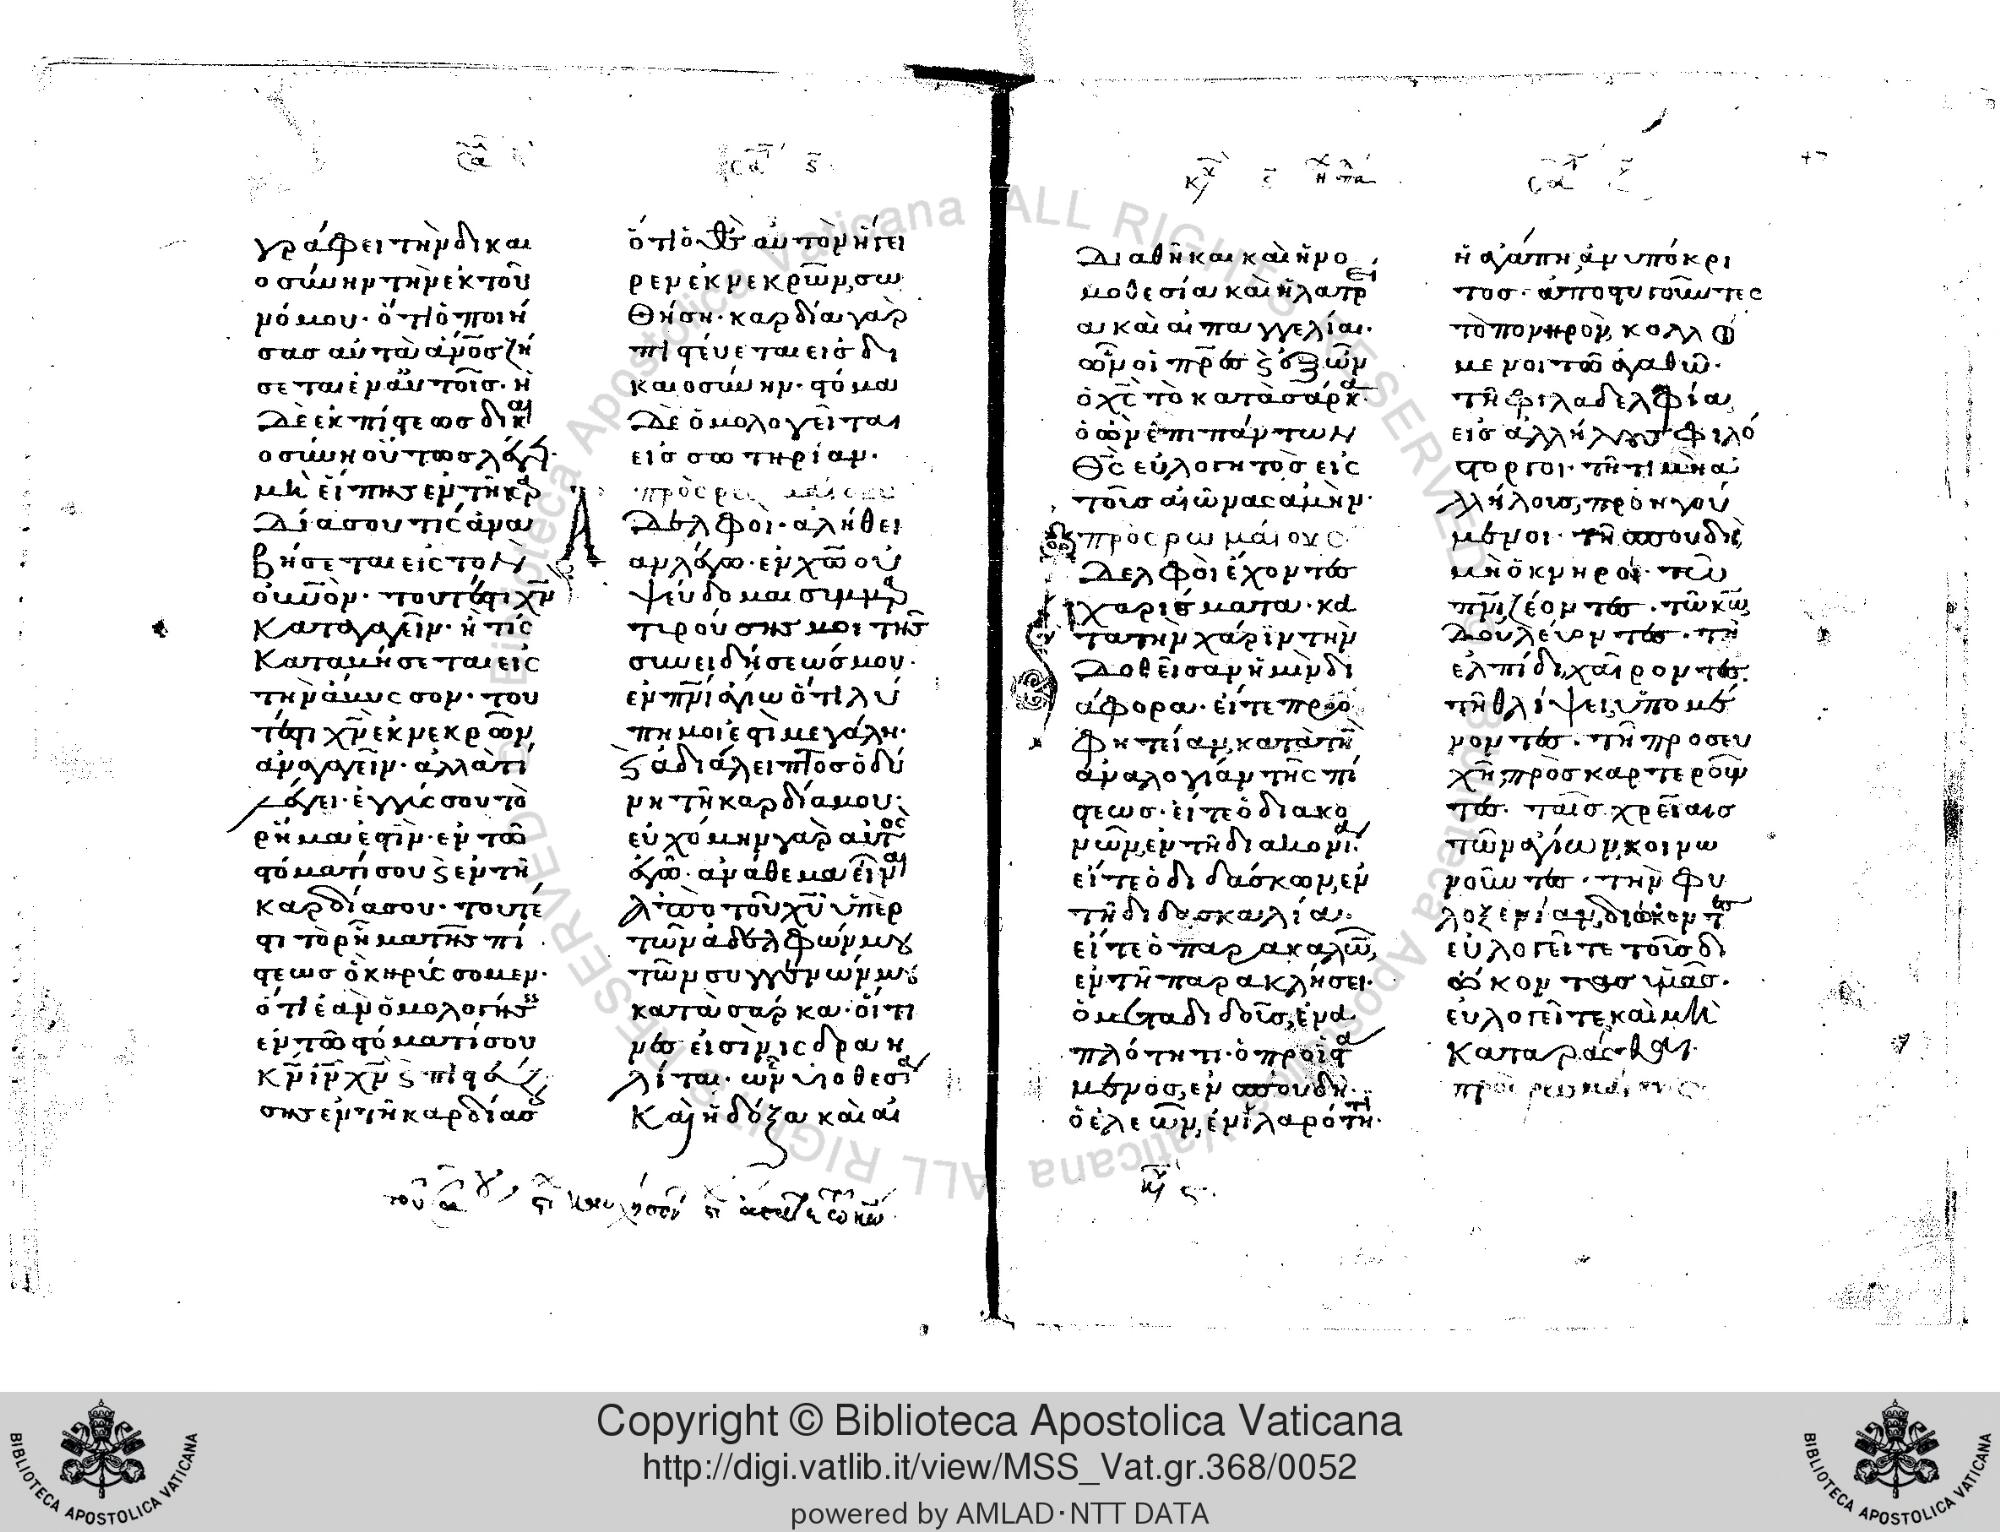 γράφει την δικαι
οσύνην την εκ του
νόμου· ὅτι ὁ ποιή
σας αυτὰ ἄνος ζή
σεται ἐν αυτοῖς· ἡ
δὲ ἐκ πίστεως δικαι
οσύνη οὕτως λέγει·
μὴ εἴπης ἐν τῆ καρ
δία σου τίς ἀνα
βήσεται εἰς τὸν
οὐνὸν· τουτέστι χν̅
καταγαγεῖν· ἢ τίς
καταβήσεται εἰς
την ἄβυσσον· του
τέστι χν̅ ἐκ νεκρῶν
ἀναγαγεῖν· ἀλλὰ τί
λέγει· ἐγγύς σου τὸ
ρῆμα ἐστὶν· ἐν τῶ
στόματί σου ϗ ἐν τῆ
καρδία σου· τουτέ
στι τὸ ρῆμα τῆς πί
στεως ὃ κηρύσσομεν·
ὅτι ἐὰν ὁμολογήσης
ἐν τῶ στόματί σου
κν̅ ιν̅ χν̅ ϗ πιστεύ
σης ἐν τῆ καρδία σου
ὅτι ὁ θς̅ αὐτὸν ἤγει
ρεν ἐκ νεκρῶν, σω
θήση· καρδία γὰρ
πιστεύεται εἰς δι
καιοσύνην· στόμα
δὲ ὁμολογεῖται
εἰς σωτηρίαν·
πρὸς ρωμαίους
Ἀδελφοὶ· ἀλήθει
αν λέγω· ἐν χω̅ οὐ
ψεύδομαι συμμαρ
τυρούσης μοι τῆς
συνειδήσεώς μου·
ἐν πνι̅ ἁγίω ὅτι λύ
πη μοι ἐστὶ μεγάλη·
ϗ ἀδιάλειπτος ὀδύ
νη τῆ καρδία μου·
εὐχόμην γὰρ αὐτὸς
ἐγὼ· ἀνάθεμα εἶναι
ἀπὸ τοῦ χυ̅ ὑπὲρ
τῶν ἀδελφῶν μου
τῶν συγγενῶν μου
κατὰ σάρκα· οἵτι
νές εἰσὶν ισδραη
λίται· ὧν ἡ υἱοθεσία
καὶ ἡ δόξα καὶ αἱ
διαθῆκαι καὶ ἡ νο
μοθεσία καὶ ἡ λατρεί
α καὶ αἱ ἐπαγγελίαι·
ὧν οἱ πρ̅ες ϗ ἐξ ὧν
ὁ χς̅ τὸ κατὰ σάρκα·
ὁ ὢν ἐπὶ πάντων
θς̅ εὐλογητὸς εἰς
τοὺς αἰῶνας ἀμὴν·
πρὸς ρωμαίους
Ἀδελφοὶ ἔχοντες
χαρίσματα· κα
τὰ τὴν χάριν τὴν
δοθεῖσαν ἡμὶν δι
άφορα· εἴτε προ
φητείαν, κατὰ τὴν
ἀναλογίαν τῆς πί
στεως· εἴτε ὁ διακο
νῶν, ἐν τῆ διακονία·
εἴτε ὁ διδάσκων, ἐν
τῆ διδασκαλία·
εἴτε ὁ παρακαλῶν,
ἐν τῆ παρακλήσει·
ὁ μεταδιδοὺς, ἐν ἁ
πλότητι· ὁ προϊστά
μενος, ἐν σπουδῆ·
ὁ ἐλεῶν, ἐν ἱλαρότητι·
ἡ ἀγάπη ἀνυπόκρι
τος· ἀποστυγοῦντες
τὸ πονηρὸν, κολλώ
μενοι τῶ ἀγαθῶ·
τῆ φιλαδελφία
εἰς ἀλλήλους φιλό
στοργοι· τῆ τιμῆ ἀ
λλήλους, προηγού
μενοι· τῆ σπουδῆ,
μὴ ὀκνηροί· τῶ
πνι̅ ζέοντες· τῶ κω̅
δουλεύοντες· τῆ
ἐλπίδι, χαίροντες·
τῆ θλίψει, ὑπομέ
νοντες· τῆ προσευ
χῆ, προσκαρτεροῦν
τες· ταῖς χρείαις
τῶν ἁγίων, κοινω
νοῦντες· τὴν φι
λοξενίαν, διώκοντες
εὐλογεῖτε τοὺς δι
ώκοντας ὑμᾶς·
εὐλογεῖτε καὶ μὴ
καταρᾶσθαι·
πρὸς ρωμαίους
Copyright © Biblioteca Apostolica Vaticana
http://digi.vatlib.it/view/MSS_Vat.gr.368/0052
powered by AMLAD·NTT DATA
BIBLIOTECA APOSTOLICA VATICANA
BIBLIOTECA APOSTOLICA VATICANA